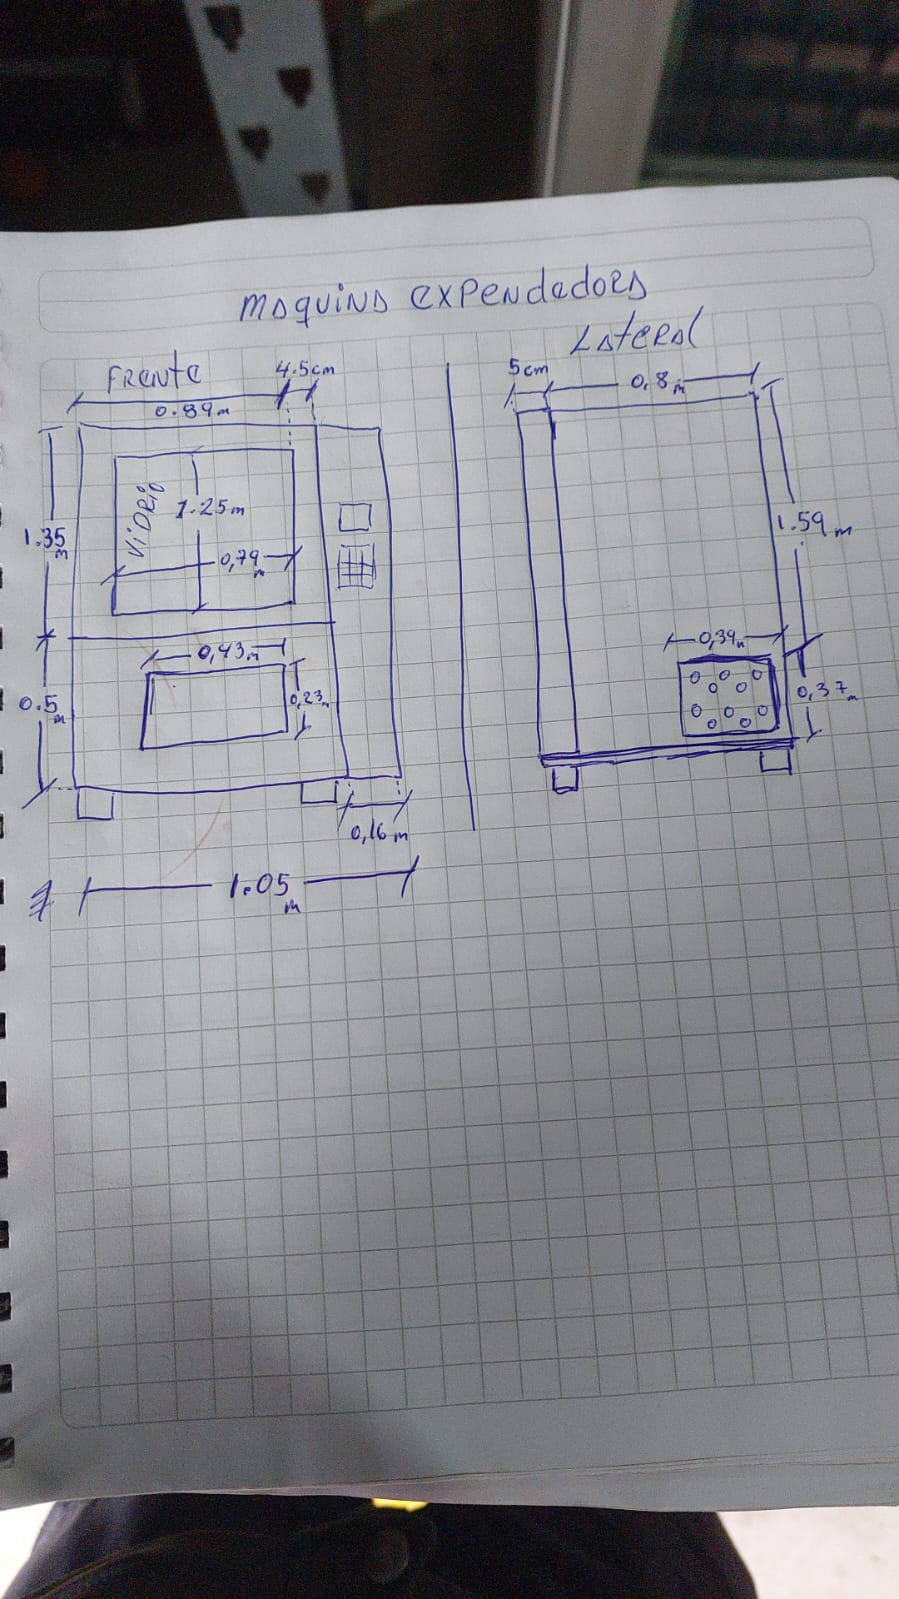 MAQUINA EXPENDEDORA
FRENTE
4.5cm
0.89m
VIDRIO
1.25m
0,79
m
1.35
m
0,43m
0,23m
0.5
m
0,16m
1.05
m
LATERAL
5cm
0,8
m
1.59 m
0,39m
0,37m